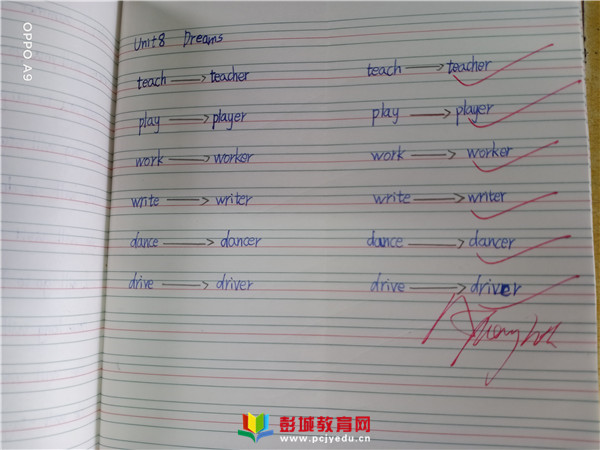 Unit 8 Dreams
teach → teacher teach → teacher
play → player play → player
work → worker work → worker
write → writer write → writer
dance → dancer dance → dancer
drive → driver drive → driver
彭城教育网
www.pcjyedu.cn
OPPO A9